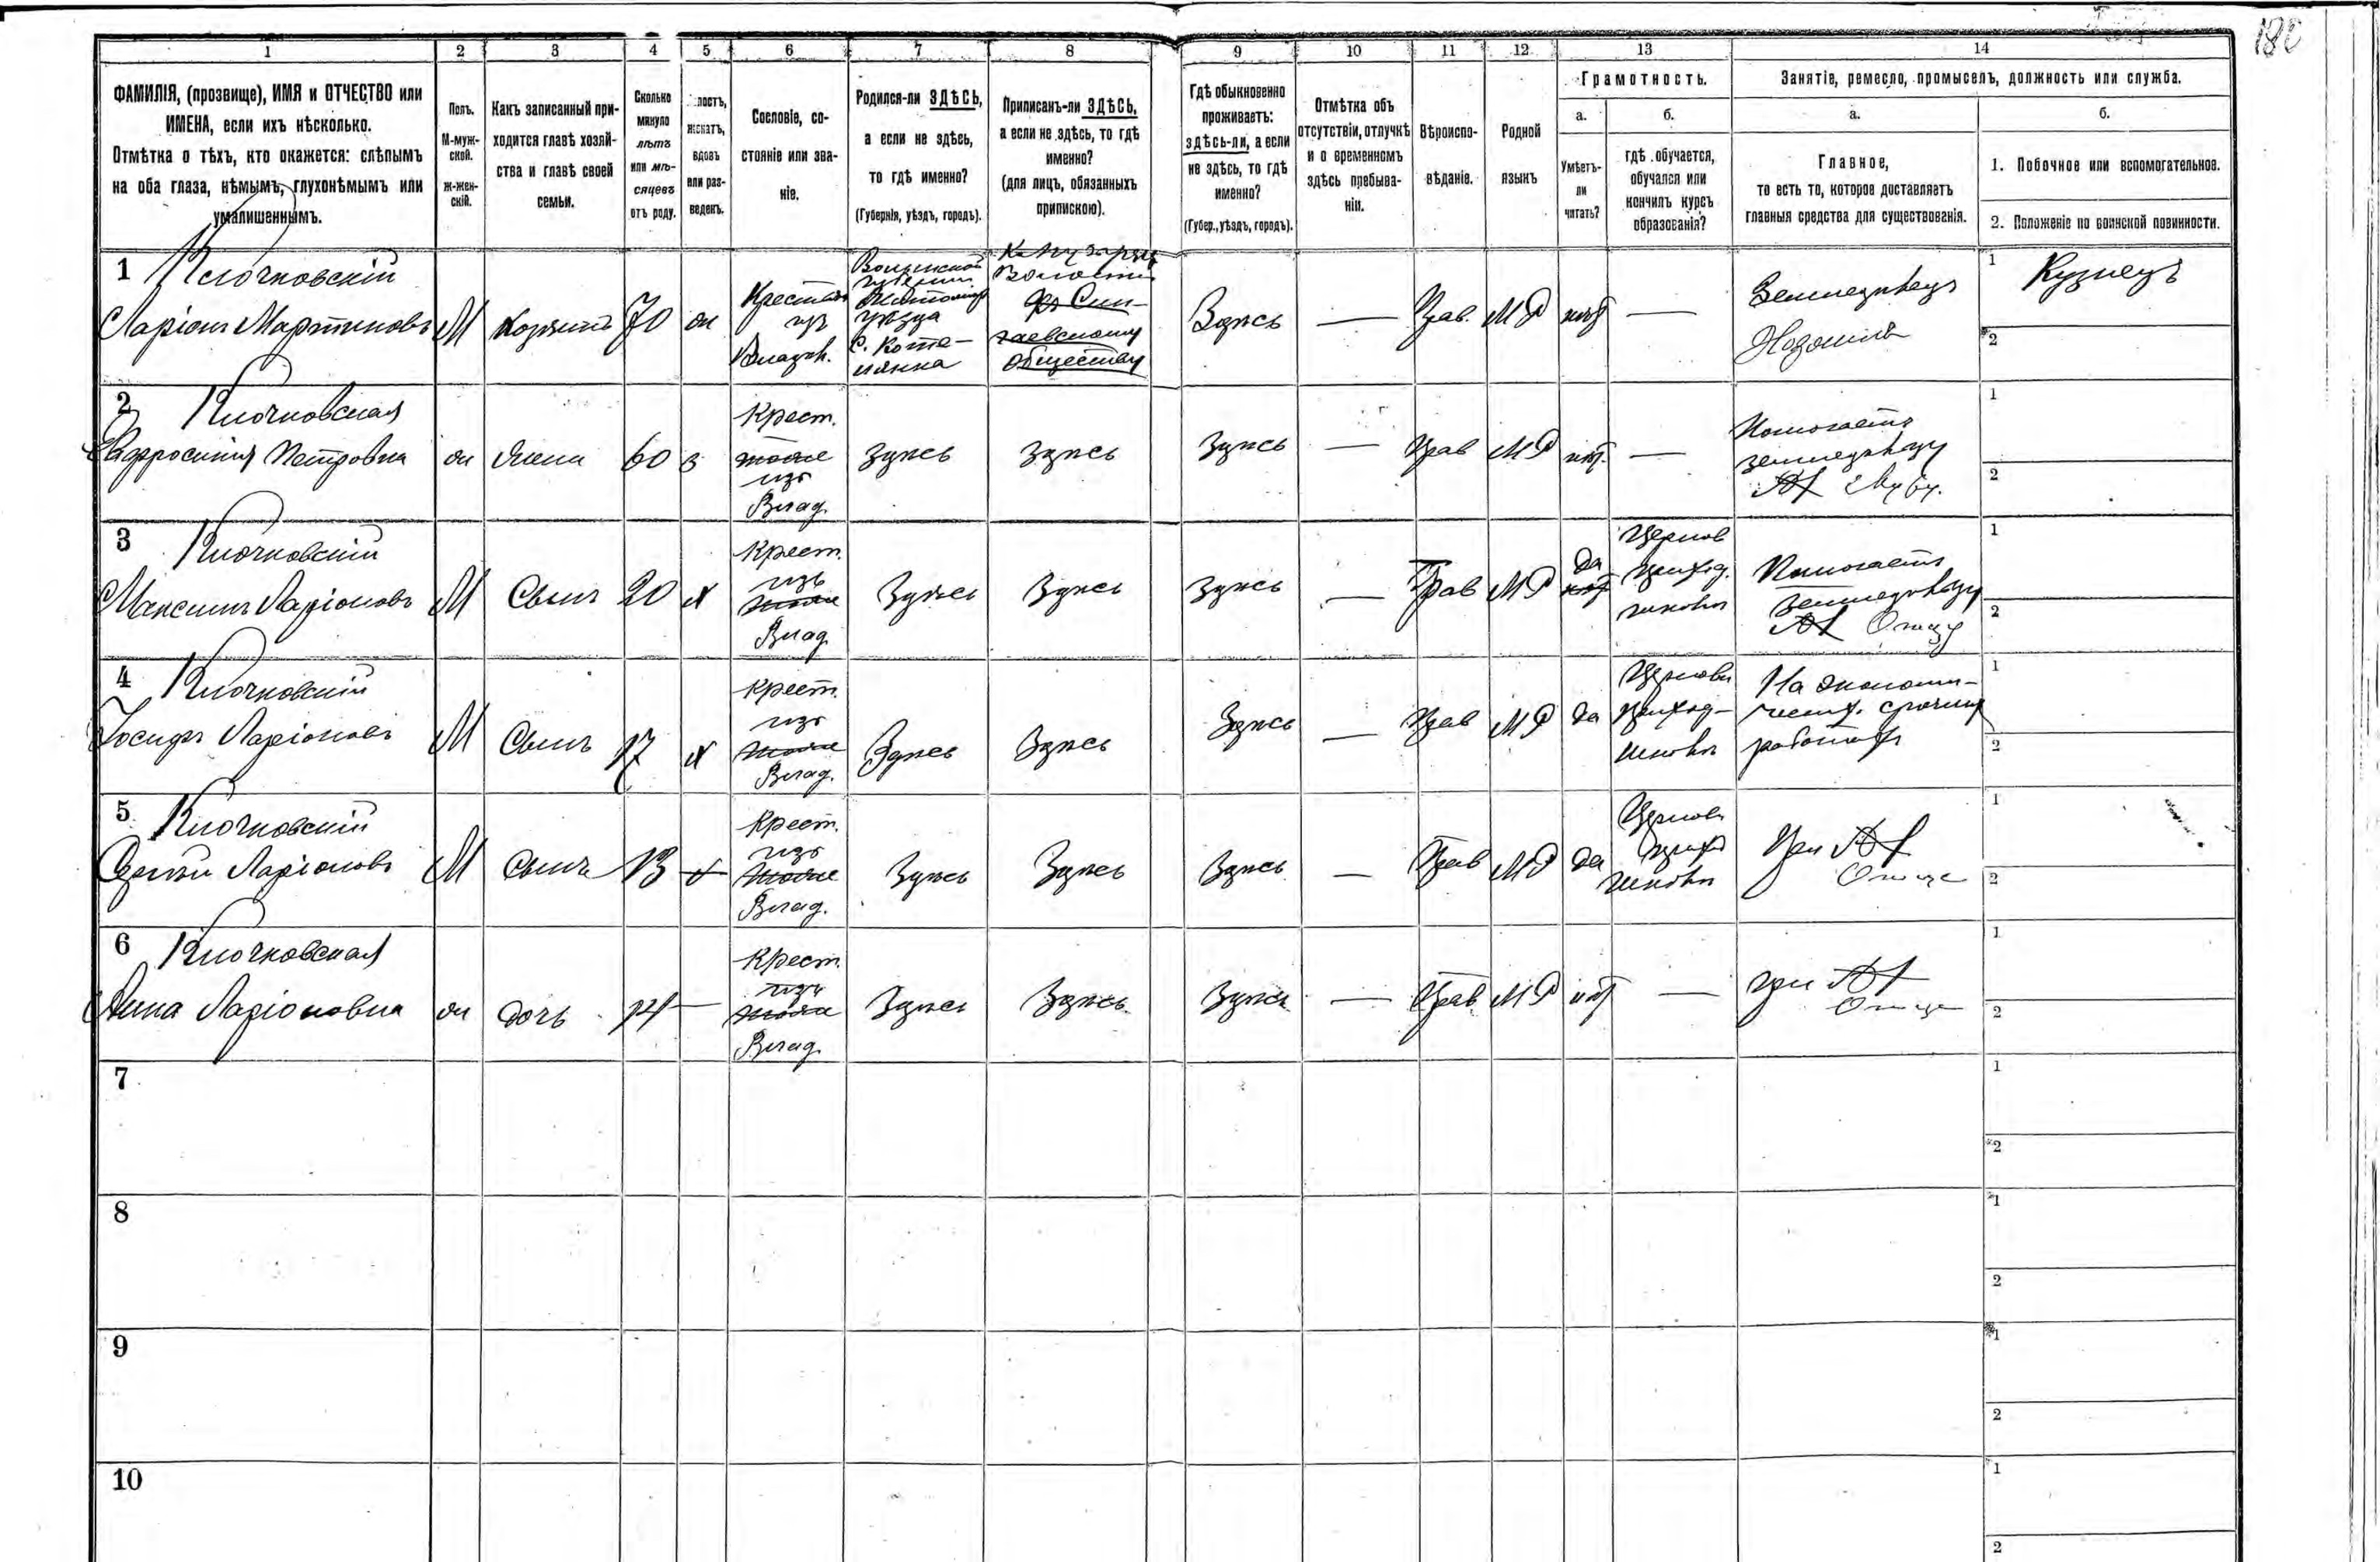 180
1 2 3 4 5 6 7 8 9 10 11 12 13 14
ФАМИЛІЯ, (прозвище), ИМЯ и ОТЧЕСТВО или
ИМЕНА, если ихъ нѣсколько.
Отмѣтка о тѣхъ, кто окажется: слѣпымъ
на оба глаза, нѣмымъ, глухонѣмымъ или
умалишеннымъ.
Полъ.
М-муж-
ской.
Ж-жен-
скій.
Какъ записанный при-
ходится главѣ хозяй-
ства и главѣ своей
семьи.
Сколько
минуло
лѣтъ
или мѣ-
сяцевъ
отъ роду.
лостъ,
женатъ,
вдовъ
или раз-
веденъ.
Сословіе, со-
стояніе или зва-
ніе.
Родился-ли ЗДѢСЬ,
а если не здѣсь,
то гдѣ именно?
(Губернія, уѣздъ, городъ).
Приписанъ-ли ЗДѢСЬ,
а если не здѣсь, то гдѣ
именно?
(для лицъ, обязанныхъ
припискою).
Гдѣ обыкновенно
проживаетъ:
здѣсь-ли, а если
не здѣсь, то гдѣ
именно?
(Губер., уѣздъ, городъ).
Отмѣтка объ
отсутствіи, отлучкѣ
и о временномъ
здѣсь пребыва-
ніи.
Вѣроиспо-
вѣданіе.
Родной
языкъ
Грамотность.
а.
Умѣетъ-
ли
читать?
б.
гдѣ обучается,
обучался или
кончилъ курсъ
образованія?
Занятіе, ремесло, промыселъ, должность или служба.
а.
Главное,
то есть то, которое доставляетъ
главныя средства для существованія.
б.
1. Побочное или вспомогательное.
2. Положеніе по воинской повинности.
1 Ключковскій
Ларіонъ Мартиновъ
М
Хозяинъ
70
Крестьян
изъ
Владѣл.
Волынской
губерніи
Житомир
уѣзда
с. Коте-
лянка
Волости
гаевскому
обществу
Здѣсь
—
Прав.
МР
нѣт
—
Земледѣлецъ
1 Кузнецъ
2
2 Ключковская
Евфросинія Петровна
Жена
60
з
Крест.
тоже
изъ
Влад.
Здѣсь
Здѣсь
Здѣсь
—
Прав
МР
нѣт.
—
Помогаетъ
земледѣльцу
1
2
3 Ключковскій
Максимъ Ларіоновъ
М
Сынъ
20
х
Крест.
изъ
тоже
Влад.
Здѣсь
Здѣсь
Здѣсь
—
Прав
МР
да
нѣт
Церков
приход.
школы
Помогаетъ
земледѣльцу
Отцу
1
2
4 Ключковскій
Іосифъ Ларіоновъ
М
Сынъ
17
х
Крест.
изъ
тоже
Влад.
Здѣсь
Здѣсь
Здѣсь
—
Прав
МР
да
Церковн
приход-
школы
На экономи-
ческ. срочных
работах
1
2
5 Ключковскій
Ларіоновъ
М
Сынъ
13
х
Крест.
изъ
тоже
Влад.
Здѣсь
Здѣсь
Здѣсь
—
Прав
МР
да
Церков
приход
школы
При
Отце
1
2
6 Ключковская
Анна Ларіоновна
дочь
—
Крест.
изъ
тоже
Влад.
Здѣсь
Здѣсь
Здѣсь
—
Прав.
МР
нѣт
—
При
Отце
1
2
7
1
2
8
1
2
9
1
2
10
1
2